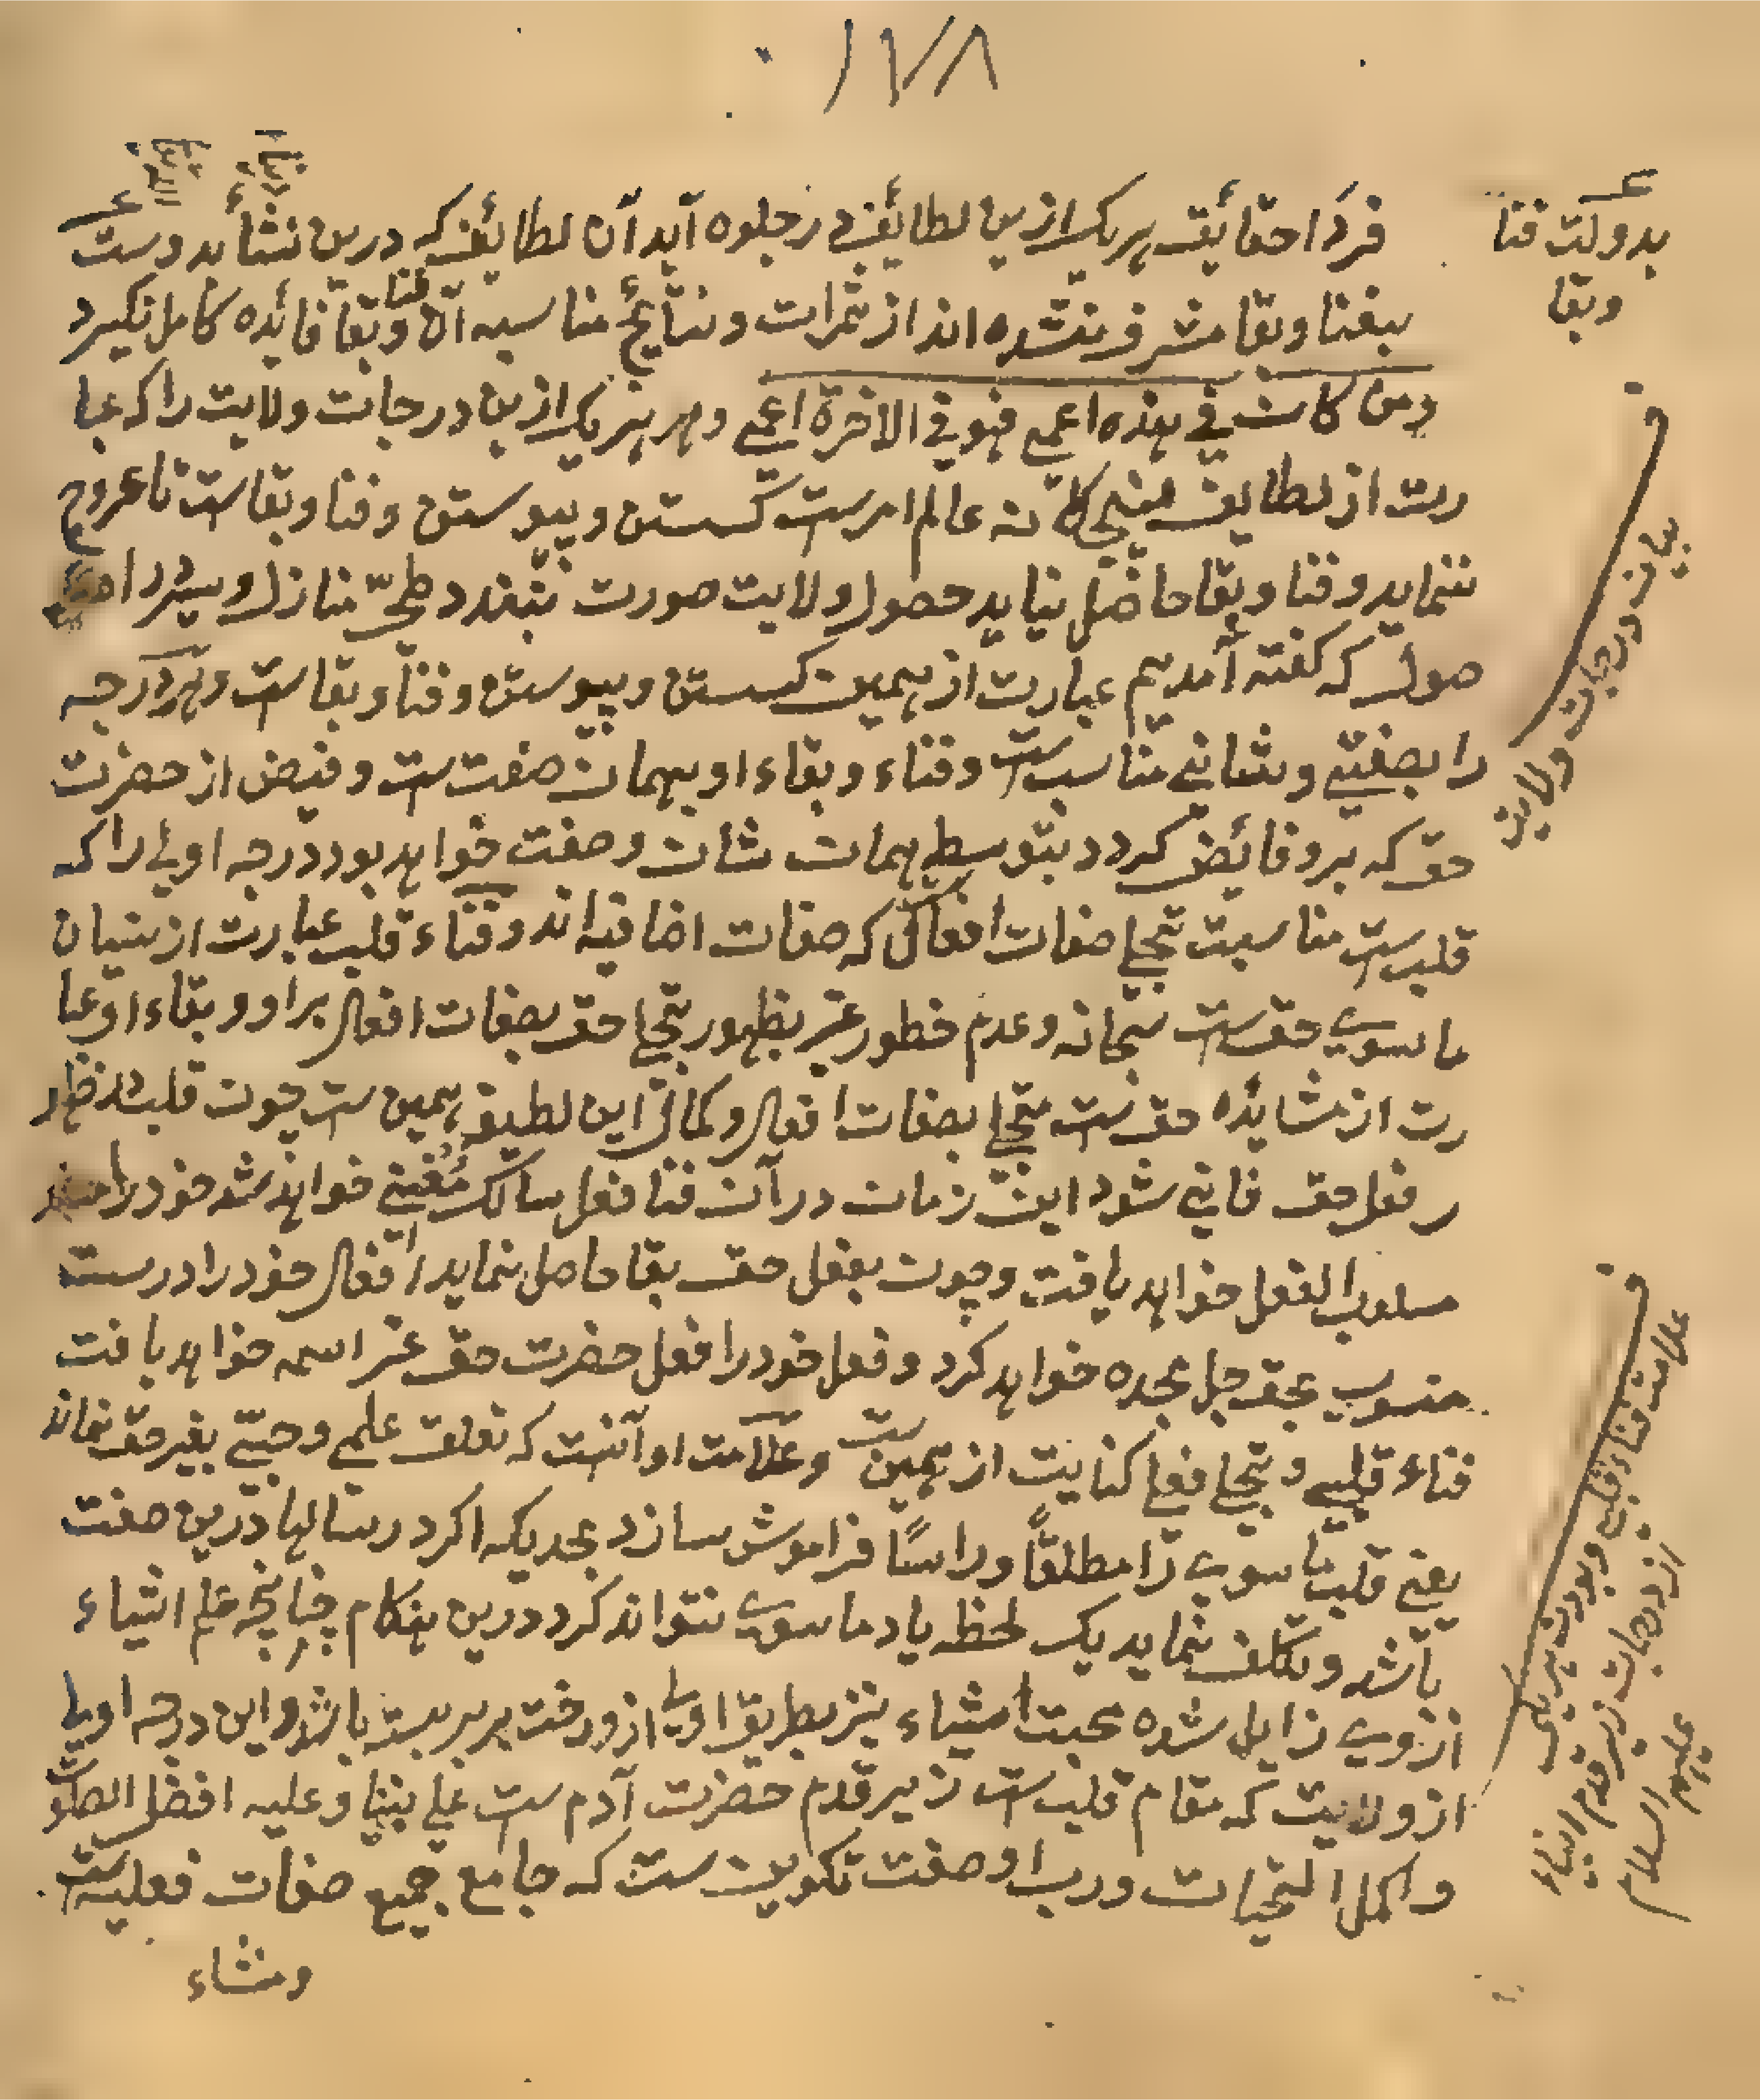 ۱۷۸
فردا حقائق هر یک ازین لطائف در جلوه آید آن لطائف که درین نشأ بدوست
بدولت فنا
وبقا
بفنا وبقا مشرف نشده اند از ثمرات ونتایج مناسبه آن فنا وبقا فائده کامل نگیرد
ومن کان فی هذه اعمی فهو فی الاخرة اعمی و هر یک ازین درجات ولایت را که عبا
رت از لطایف پنج کانه عالم امرست گسستن و پیوستن وفنا وبقاست تا عروج
ننماید وفنا وبقا حاصل نیاید حصول ولایت صورت نبندد وطیّ منازل وسیر را
صول که گفته آمدیم عبارت از همین گسستن و پیوستن وفنا وبقاست وهر درجه
را بصفتی وشانی مناسب ست وفناء وبقاء او بهمان صفت ست وفیض از حضرت
حق که برو فائض گردد بتوسط همان شان وصفت خواهد بود درجه اولی را که
قلب ست مناسبت تجلی صفات افعالی که صفات اضافیه اند وفناء قلب عبارت از نسیان
ما سوی حق ست سبحانه وعدم خطور غیر بظهور تجلی حق بصفات افعال برو وبقاء او عبا
رت از مشاهده حق ست متجلی بصفات افعال وکمال این لطیفه همین ست چون قلب در ظهو
ر فعل حق فانی شود این زمان در آن فنا فعل سالک مُفنی خواهد شد خود را
مسلوب الفعل خواهد یافت وچون بفعل حق بقا حاصل نماید افعال خود را درست
منسوب بحق جل مجده خواهد کرد وفعل خود را فعل حضرت حق عز اسمه خواهد یافت
فناء قلبی وتجلی فعلی کنایت از همین ست وعلامت او آنست که تعلق علمی وحبّی بغیر حق نماند
یعنی قلب ما سوی را مطلقًا وراسًا فراموش سازد بحدیکه اگر در سالها درین صفت
باشد وتکلف نماید یک لحظه یاد ما سوی نتواند کرد درین هنگام چنانچه علم اشیاء
ازوی زایل شده محبت اشیاء نیز بطریق اولی ازو رخت بر بسته باشد واین درجه اولی
از ولایت که مقام قلب ست زیر قدم حضرت آدم ست علی نبینا وعلیه افضل الصلوات
واکمل التحیات ورب او صفت تکوین ست که جامع جمیع صفات فعلیه ست
ومنشاء
بیان درجات ولایت
علامت فناء قلب وبودن هر یکی
از درجات زیر قدم انبیاء
علیهم السلام